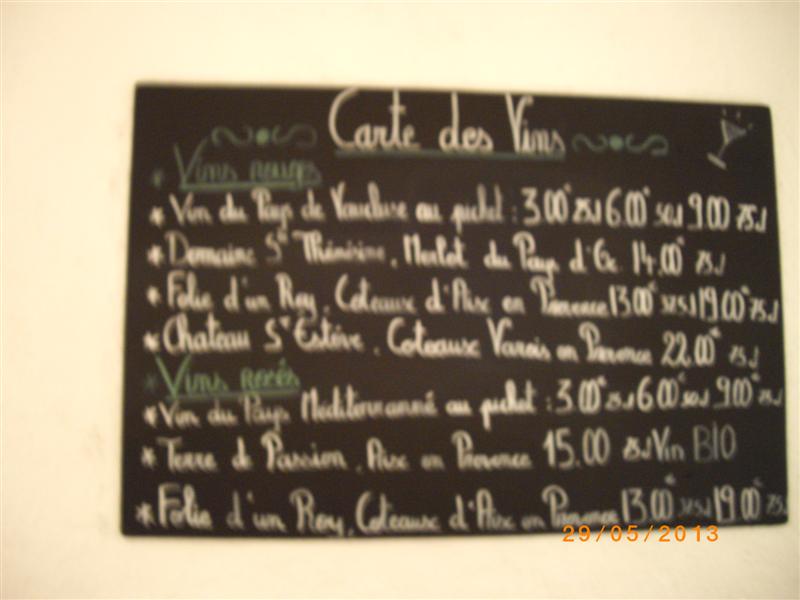 Carte des Vins
* Vins rouges
* Vin du Pays de Vaucluse au pichet : 3.00€ 25cl 6.00€ 50cl 9.00 75cl
* Domaine Ste , Merlot du Pays d'Oc 14.00€ 75cl
* Folie d'un Roy, Coteaux d'Aix en Provence 13.00€ 37.5cl 19.00€ 75cl
* Chateau St Estève, Coteaux Varois en Provence 22.00€ 75cl
* Vins rosés
* Vin du Pays Mediterranné au pichet : 3.00€ 25cl 6.00€ 50cl 9.00€ 75cl
* Terre de Passion, Aix en Provence 15.00 75cl Vin BIO
* Folie d'un Roy, Coteaux d'Aix en Provence 13.00€ 37.5cl 19.00€ 75cl
29/05/2013